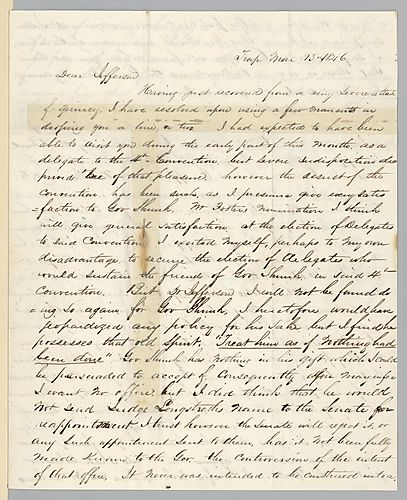 Trap Mar 13 1846
Dear Jefferson
Having just recovered from a very severe attack
of quincy, I have resolved upon using a few moments in
droping you a line or two I had expected to have been
able to visit you during the early part of this Month, as a
delegate to the 4th Convention, but severe Indisposition de=
prived me of that pleasure, however the result of the
Convention has been such, as I presume give every satis
=faction to Gov Shunk. Mr Fosters Nomination I think
will give general satisfaction, at the election of Delegates
to said Convention I exerted myself, perhaps to my own
disadvantage, to secure the election of delegates who
would sustain the friend of Gov Shunk in said 4th
Convention. But Dr Jefferson I will not be found do
=ing so again for Gov Shunk, I heretofore would have
jeopardized any policy for his sake but I find he
possesses that old Spirit, "Treat him as if Nothing had
been done" Gov Shunk has nothing in his gift which I could
be persuaded to accept of Consequently upon my
I want No office, but I did think that he would
Not send Judge Longstreths Name to the Senate for
reappointment I trust however the Senate will reject it, or
any such appointment sent to them, has it Not been fully
made known to the Gov. the Controversion of the intent
of that office, It never was intended to be construed into a